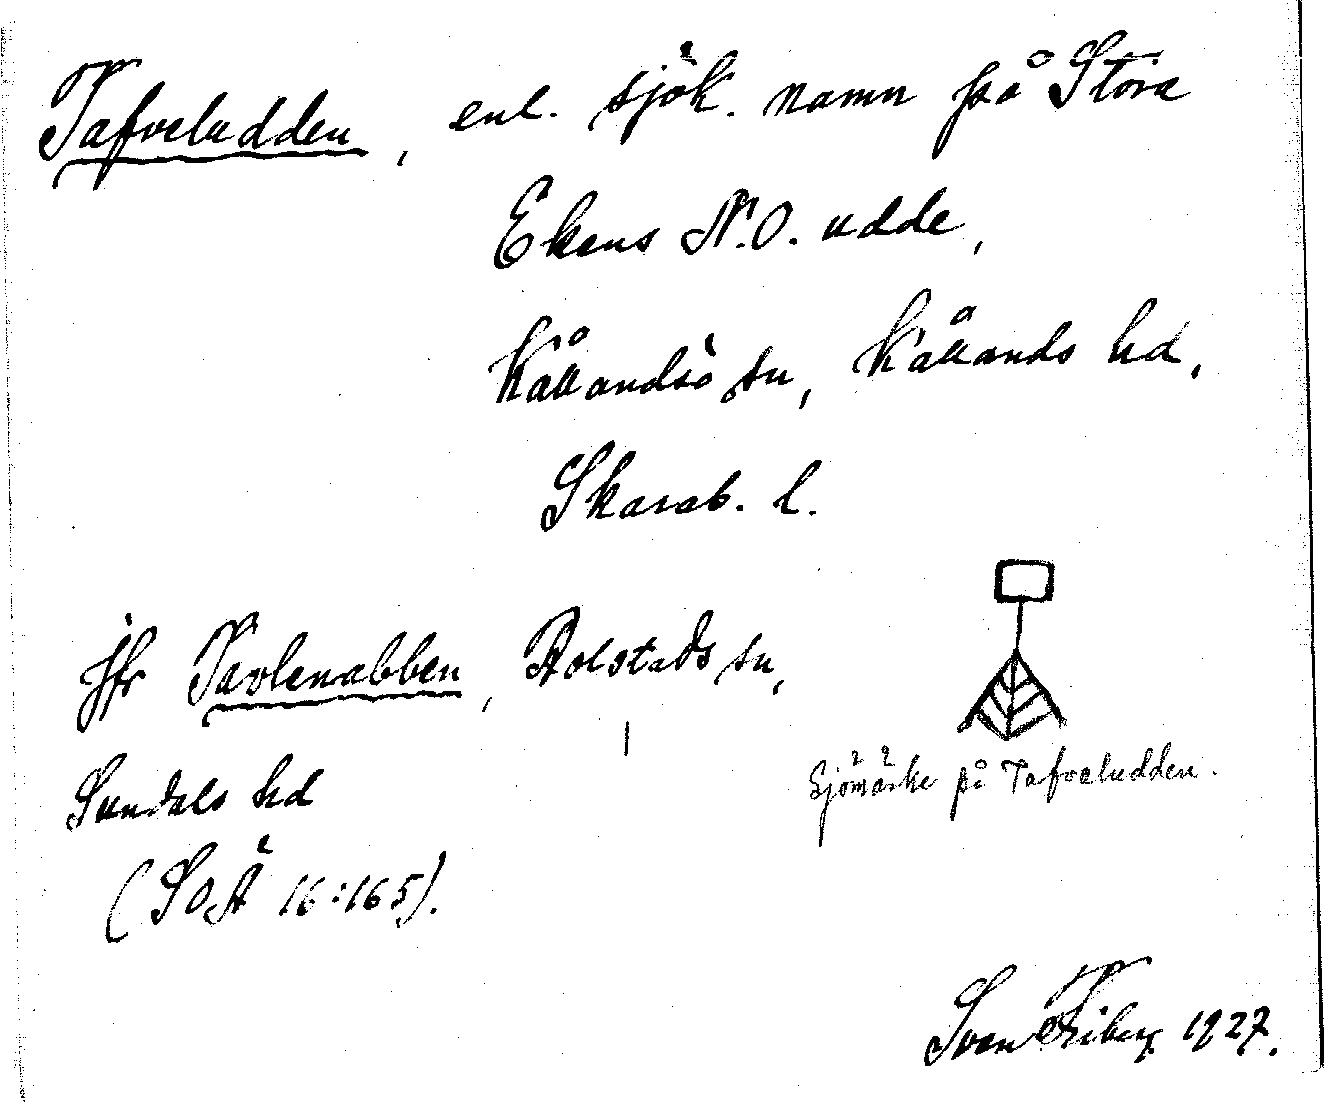 Tafveludden, enl. sjök. namn på Stora
Ekens N.O. udde,
Kållandsö sn, Kållands hd,
Skarab. l.
jfr Tavlenabben, Bolstads sn,
Sundals hd
(SOÄ 16:165).
Sjömärke på Tafveludden.
Sven Fiberg 1927.